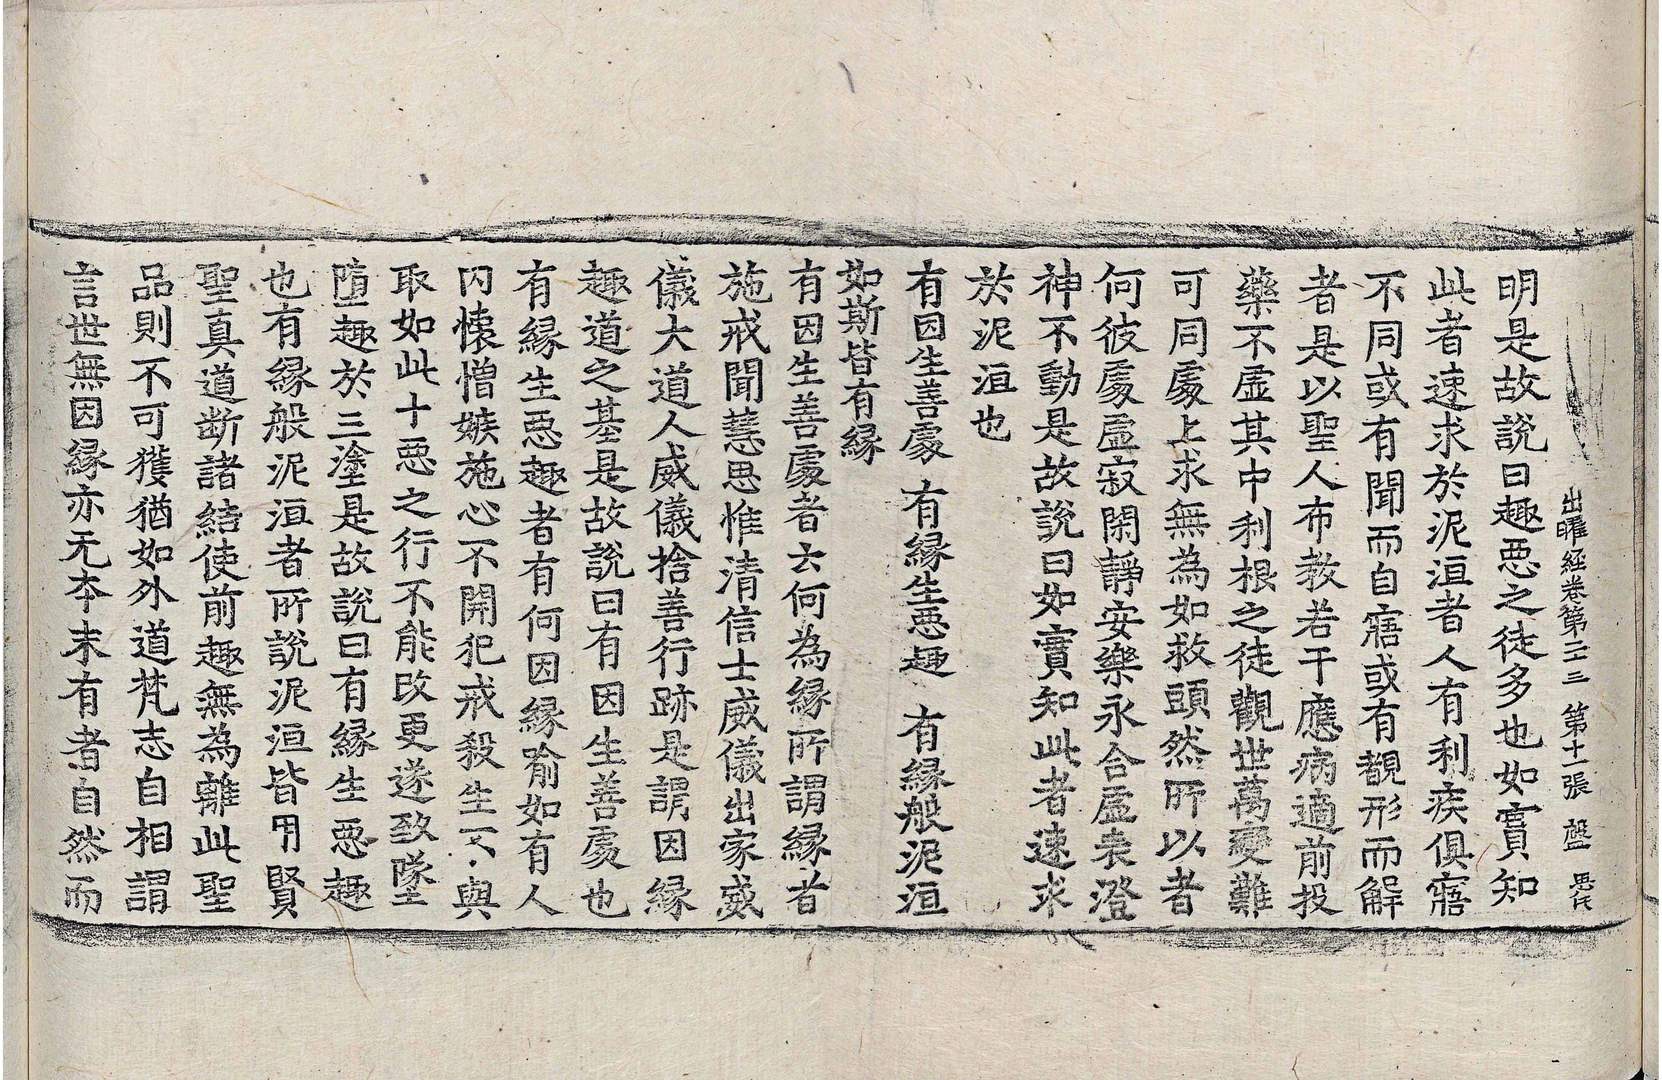 出曜經卷第二十三 第十一張 盤
明是故說曰趣惡之徒多也如實知
此者速求於泥洹者人有利疾俱寤
不同或有聞而自寤或有覩形而解
者是以聖人布教若干應病適前投
藥不虛其中利根之徒觀世萬變難
可同處上求無為如救頭然所以者
何彼處虛寂閑靜安樂永合虛表澄
神不動是故說曰如實知此者速求
於泥洹也
有因生善處 有緣生惡趣 有緣般泥洹
如斯皆有緣
有因生善處者云何為緣所謂緣者
施戒聞慧思惟清信士威儀出家威
儀大道人威儀捨善行跡是謂因緣
趣道之基是故說曰有因生善處也
有緣生惡趣者有何因緣喻如有人
內懷憎嫉施心不開犯戒殺生不與
取如此十惡之行不能改更遂致墜
墮趣於三塗是故說曰有緣生惡趣
也有緣般泥洹者所說泥洹皆用賢
聖真道斷諸結使前趣無為離此聖
品則不可獲猶如外道梵志自相謂
言世無因緣亦无本末有者自然而